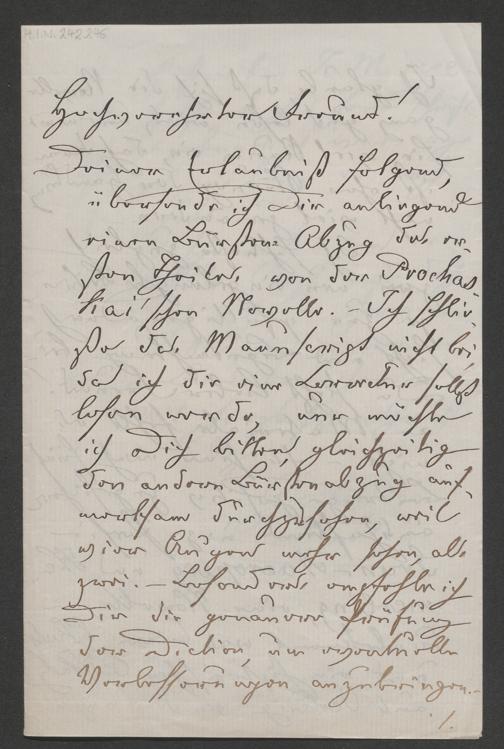 H.I.N. 242245
Hochverehrter Freund!
Deiner Erlaubniß folgend,
übersende ich Dir anliegend
einen Bürsten-Abzug des er-
sten Theiles von der Prochas-
kai'schen Novelle. - Ich schlie-
ße das Manuscript nicht bei,
da ich die eine Correctur selbst
lesen werde, nur möchte
ich Dich bitten, gleichzeitig
den andern Bürstenabzug auf-
merksam durchzusehen, weil
vier Augen mehr sehen, als
zwei. - Besonders empfehle ich
Dir die genauere Prüfung
der Diction, um eventuelle
Verbesserungen anzubringen. -
/.